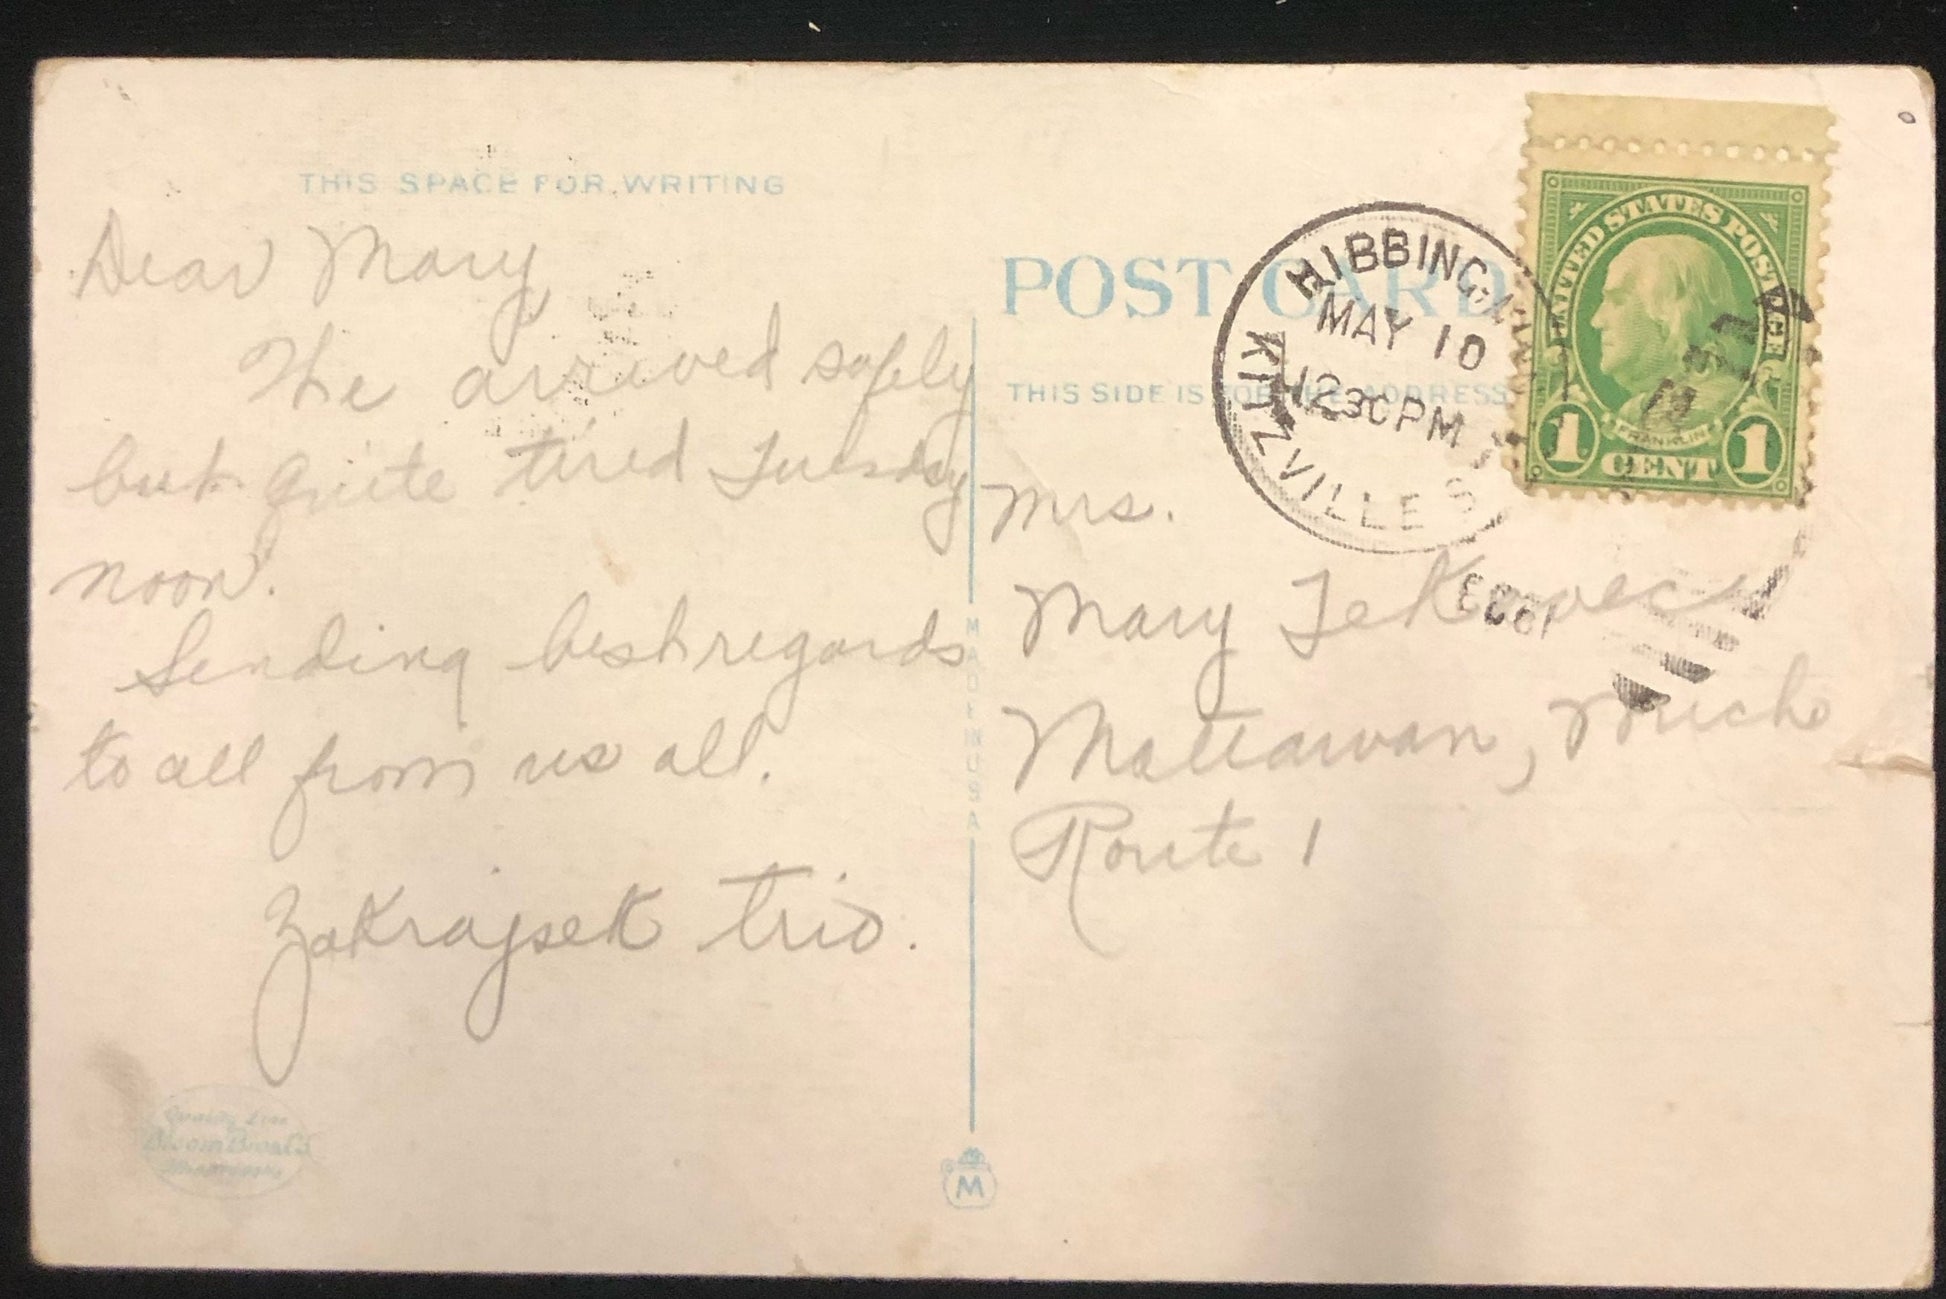 THIS SPACE FOR WRITING
Dear Mary
The arrived safely
but quite tired Tuesday
noon.
Sending best regards
to all from us all.
Zakrajsek trio.
Quality Line
Bloom Bros. Co
Minneapolis
MADE IN USA
M
POST CARD
THIS SIDE IS FOR THE ADDRESS
HIBBING, MINN
MAY 10
12 30 PM
KITZVILLE S
1933
UNITED STATES POSTAGE
FRANKLIN
1 CENT 1
Mrs.
Mary
Mattawan, Mich
Route 1